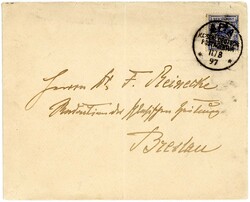 11/8
97
Herrn Dr. F. Reinecke
Redaction der Schlesischen Zeitung
Breslau